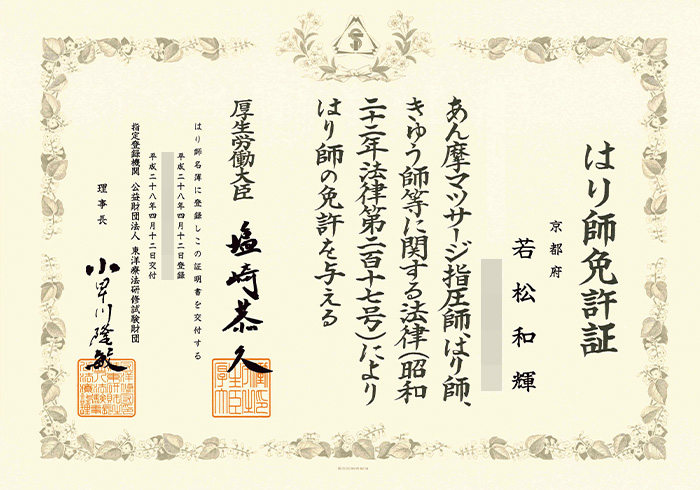 はり師免許証
京都府
若松和輝
あん摩マツサージ指圧師、はり師、
きゆう師等に関する法律(昭和
二十二年法律第二百十七号)により
はり師の免許を与える
厚生労働大臣 塩崎恭久
はり師名簿に登録しこの証明書を交付する
平成二十八年四月十二日登録
平成二十八年四月十二日交付
指定登録機関 公益財団法人 東洋療法研修試験財団
理事長 小早川隆敏